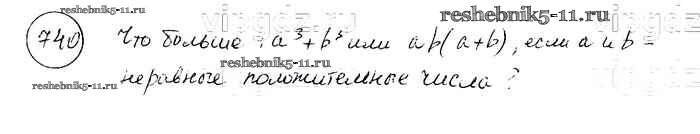 reshebnik5-11.ru
740 Что больше: a³+b³ или ab(a+b), если a и b –
reshebnik5-11.ru
неравные положительные числа?
reshebnik5-11.ru
reshebnik5-11.ru